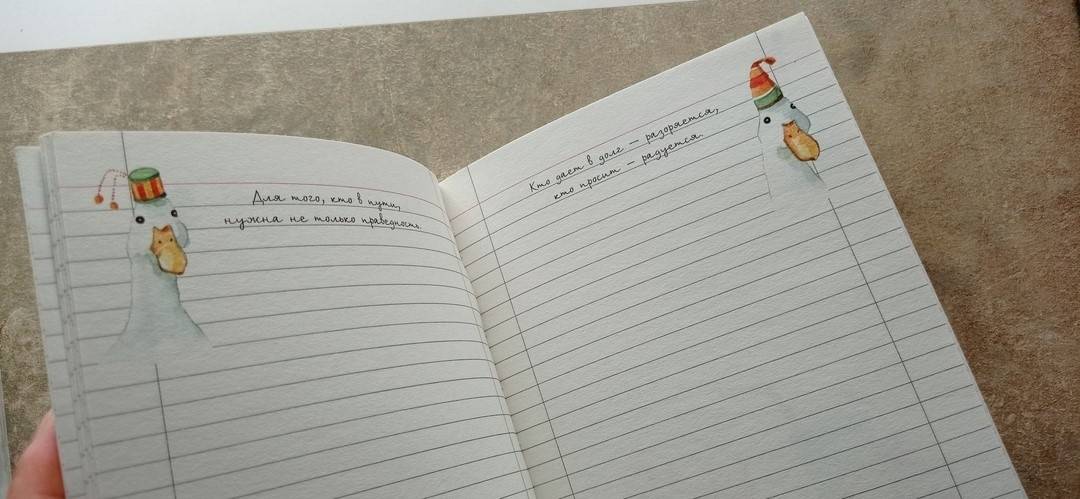 Для того, кто в пути,
нужна не только праведность.
Кто дает в долг — разоряется,
кто просит — радуется.